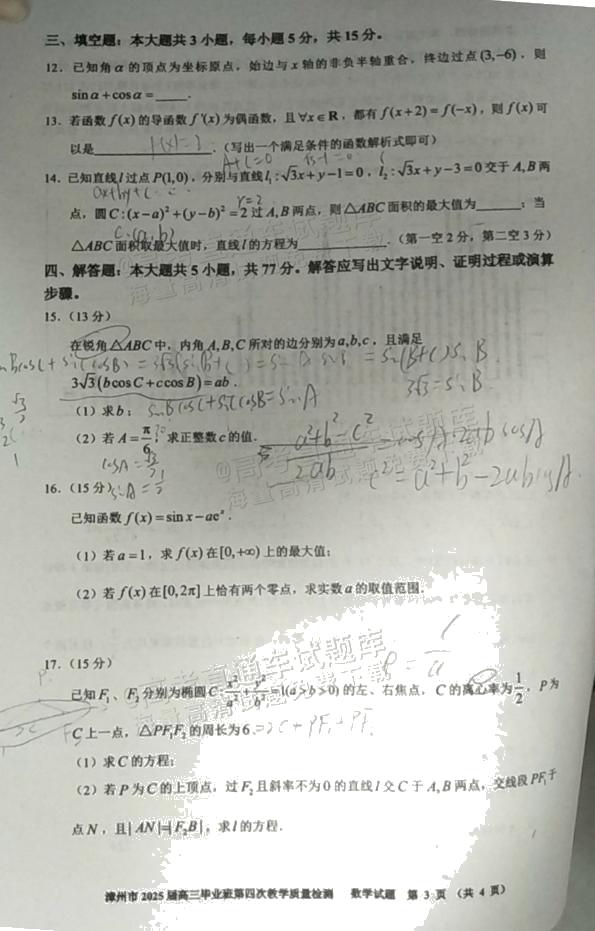 三、填空题：本大题共3小题，每小题5分，共15分。
12．已知角α的顶点为坐标原点，始边与x轴的非负半轴重合，终边过点(3,-6)，则
sinα+cosα=_____.
13．若函数f(x)的导函数f'(x)为偶函数，且∀x∈R，都有f(x+2)=f(-x)，则f(x)可
以是__________.（写出一个满足条件的函数解析式即可）
A+C=0
14．已知直线l过点P(1,0)，分别与直线l₁:√3x+y-1=0，l₂:√3x+y-3=0交于A,B两
点，圆C:(x-a)²+(y-b)²=2过A,B两点，则△ABC面积的最大值为_____；当
C:(a,b)
△ABC面积取最大值时，直线l的方程为__________.（第一空2分，第二空3分）
四、解答题：本大题共5小题，共77分。解答应写出文字说明、证明过程或演算
步骤。
15．（13分）
在锐角△ABC中，内角A,B,C所对的边分别为a,b,c，且满足
3√3(bcosC+ccosB)=ab．
3√3=sinB
（1）求b；
sinBcosC+sinCcosB=sinA
（2）若A=π/6，求正整数c的值．
c²=a²+b²-2abcosA
16．（15分）
已知函数f(x)=sinx-aeˣ．
（1）若a=1，求f(x)在[0,+∞)上的最大值；
（2）若f(x)在[0,2π]上恰有两个零点，求实数a的取值范围．
17．（15分）
已知F₁、F₂分别为椭圆C:x²/a²+y²/b²=1(a>b>0)的左、右焦点，C的离心率为1/2，P为
C上一点，△PF₁F₂的周长为6．
（1）求C的方程；
（2）若P为C的上顶点，过F₂且斜率不为0的直线l交C于A,B两点，交线段PF₁于
点N，且|AN|=|F₂B|，求l的方程．
漳州市2025届高三毕业班第四次教学质量检测 数学试题 第3页（共4页）